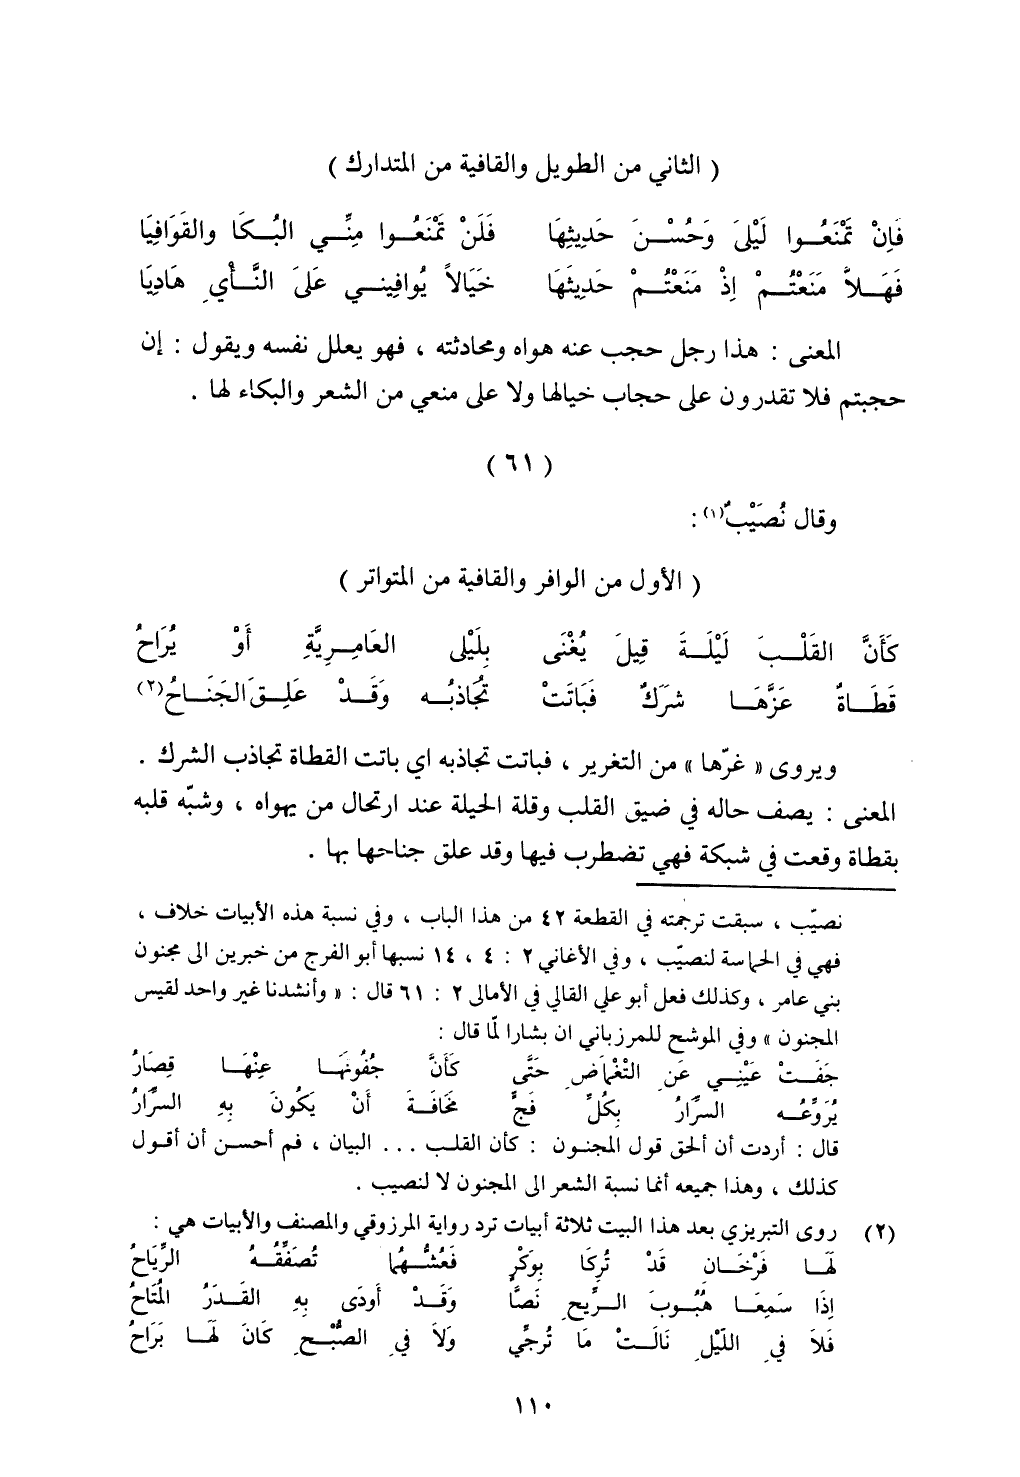 ( الثاني من الطويل والقافية من المتدارك )
فَإِنْ تَمْنَعُـوا لَيْلَى وَحُسْـنَ حَدِيثِهَا فَلَنْ تَمْنَعُـوا مِنِّـي البُـكَا والقَوَافِيَا
فَهَـلاَّ مَنَعْتُـمْ إِذْ مَنَعْتُـمْ حَدِيثَهَا خَيَالاً يُوافِينـي عَلَى النَّـأْيِ هَادِيَا
المعنى : هذا رجل حجب عنه هواه ومحادثته ، فهو يعلل نفسه ويقول : إن
حجبتم فلا تقدرون على حجاب خيالها ولا على منعي من الشعر والبكاء لها .
( ٦١ )
وقال نُصَيْبٌ(١) :
( الأول من الوافر والقافية من المتواتر )
كَأَنَّ القَلْـبَ لَيْلَـةَ قِيلَ يُغْدَى بِلَيْلَى العَامِـرِيَّةِ أَوْ يُرَاحُ
قَطَـاةٌ عَزَّهَـا شَرَكٌ فَبَاتَتْ تُجَاذِبُـه وَقَـدْ عَلِـقَ الجَنَـاحُ(٢)
ويروى « غرّها » من التغرير ، فباتت تجاذبه اي باتت القطاة تجاذب الشرك .
المعنى : يصف حاله في ضيق القلب وقلة الحيلة عند ارتحال من يهواه ، وشبّه قلبه
بقطاة وقعت في شبكة فهي تضطرب فيها وقد علق جناحها بها .
نصيّب ، سبقت ترجمته في القطعة ٤٢ من هذا الباب ، وفي نسبة هذه الأبيات خلاف ،
فهي في الحماسة لنصيّب ، وفي الأغاني ٢ : ٤ ، ١٤ نسبها أبو الفرج من خبرين الى مجنون
بني عامر ، وكذلك فعل أبو علي القالي في الأمالى ٢ : ٦١ قال : « وأنشدنا غير واحد لقيس
المجنون » وفي الموشح للمرزباني ان بشارا لمّا قال :
جَفَـتْ عَيْنِـي عَنِ التَّغْمَاضِ حَتَّى كَأَنَّ جُفُونَهَـا عِنْهَـا قِصَارُ
يُرَوِّعُـه السرَّارُ بِكُلِّ فَجٍّ مَخَافَـةَ أَنْ يَكُونَ بِهِ السرَّارُ
قال : أردت أن ألحق قول المجنـون : كأن القلـب ... البيان ، فم أحسن أن أقول
كذلك ، وهذا جميعه أنما نسبة الشعر الى المجنون لا لنصيب .
(٢) روى التبريزي بعد هذا البيت ثلاثة أبيات ترد رواية المرزوقي والمصنف والأبيات هي :
لَهَـا فَرْخَـان قَدْ تُرِكَا بِوَكْرٍ فَعُشُّـهُمَا تُصَفِّقُـهُ الرِّيَاحُ
إِذَا سَمِعَـا هُبُـوبَ الـرِّيحِ نَصَّا وَقَـدْ أَودَى بِهِ القَـدَرُ المُتَاحُ
فَلاَ فِي اللَيْلِ نَالَـتْ مَا تُرجِّي وَلاَ فِي الصُّبْـحِ كَانَ لَهَـا بَرَاحُ
١١٠